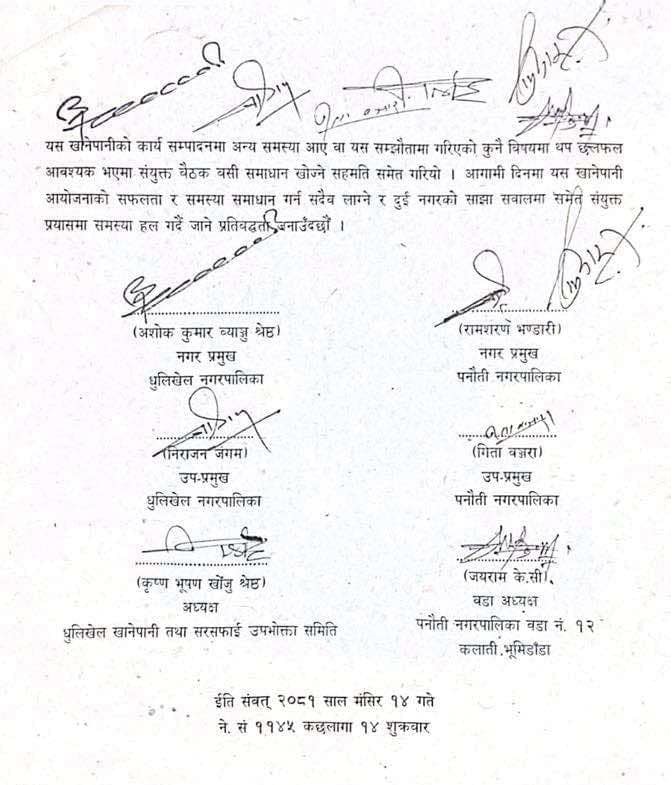 यस खानेपानीको कार्य सम्पादनमा अन्य समस्या आए वा यस सम्झौतामा गरिएको कुनै विषयमा थप छलफल
आवश्यक भएमा संयुक्त बैठक वसी समाधान खोज्ने सहमति समेत गरियो । आगामी दिनमा यस खानेपानी
आयोजनाको सफलता र समस्या समाधान गर्न सदैव लाग्ने र दुई नगरको साझा सवालमा समेत संयुक्त
प्रयासमा समस्या हल गर्दै जाने प्रतिबद्धता जनाउँदछौं ।
(अशोक कुमार व्याञ्जु श्रेष्ठ)
नगर प्रमुख
धुलिखेल नगरपालिका
(रामशरण भण्डारी)
नगर प्रमुख
पनौती नगरपालिका
(निराजन जंगम)
उप-प्रमुख
धुलिखेल नगरपालिका
(गिता वञ्जरा)
उप-प्रमुख
पनौती नगरपालिका
(कृष्ण भूषण खोंजु श्रेष्ठ)
अध्यक्ष
धुलिखेल खानेपानी तथा सरसफाई उपभोक्ता समिति
(जयराम के.सी)
वडा अध्यक्ष
पनौती नगरपालिका वडा नं. १२
कलाती भूमिडाँडा
ईति संवत् २०८१ साल मंसिर १४ गते
ने. सं ११४५ कछलागा १४ शुक्रवार